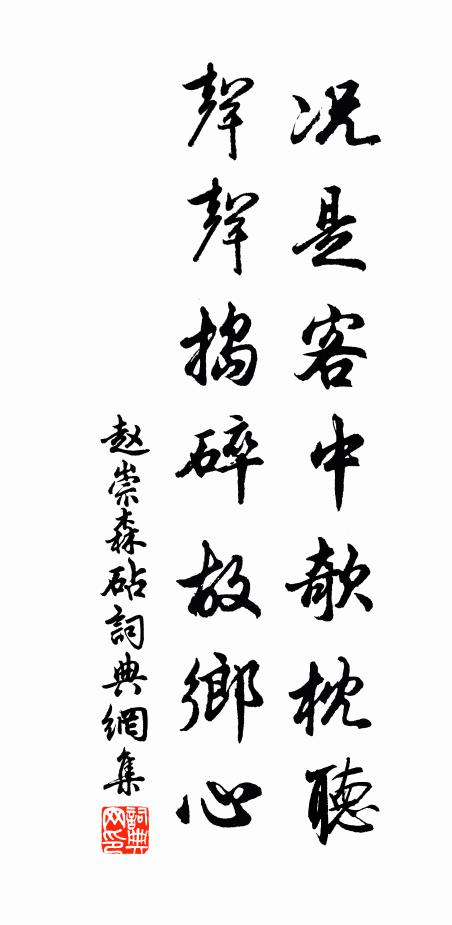 况是客中欹枕聽
聲聲搗碎故鄉心
赵崇森砧詞典網集
詞典网印